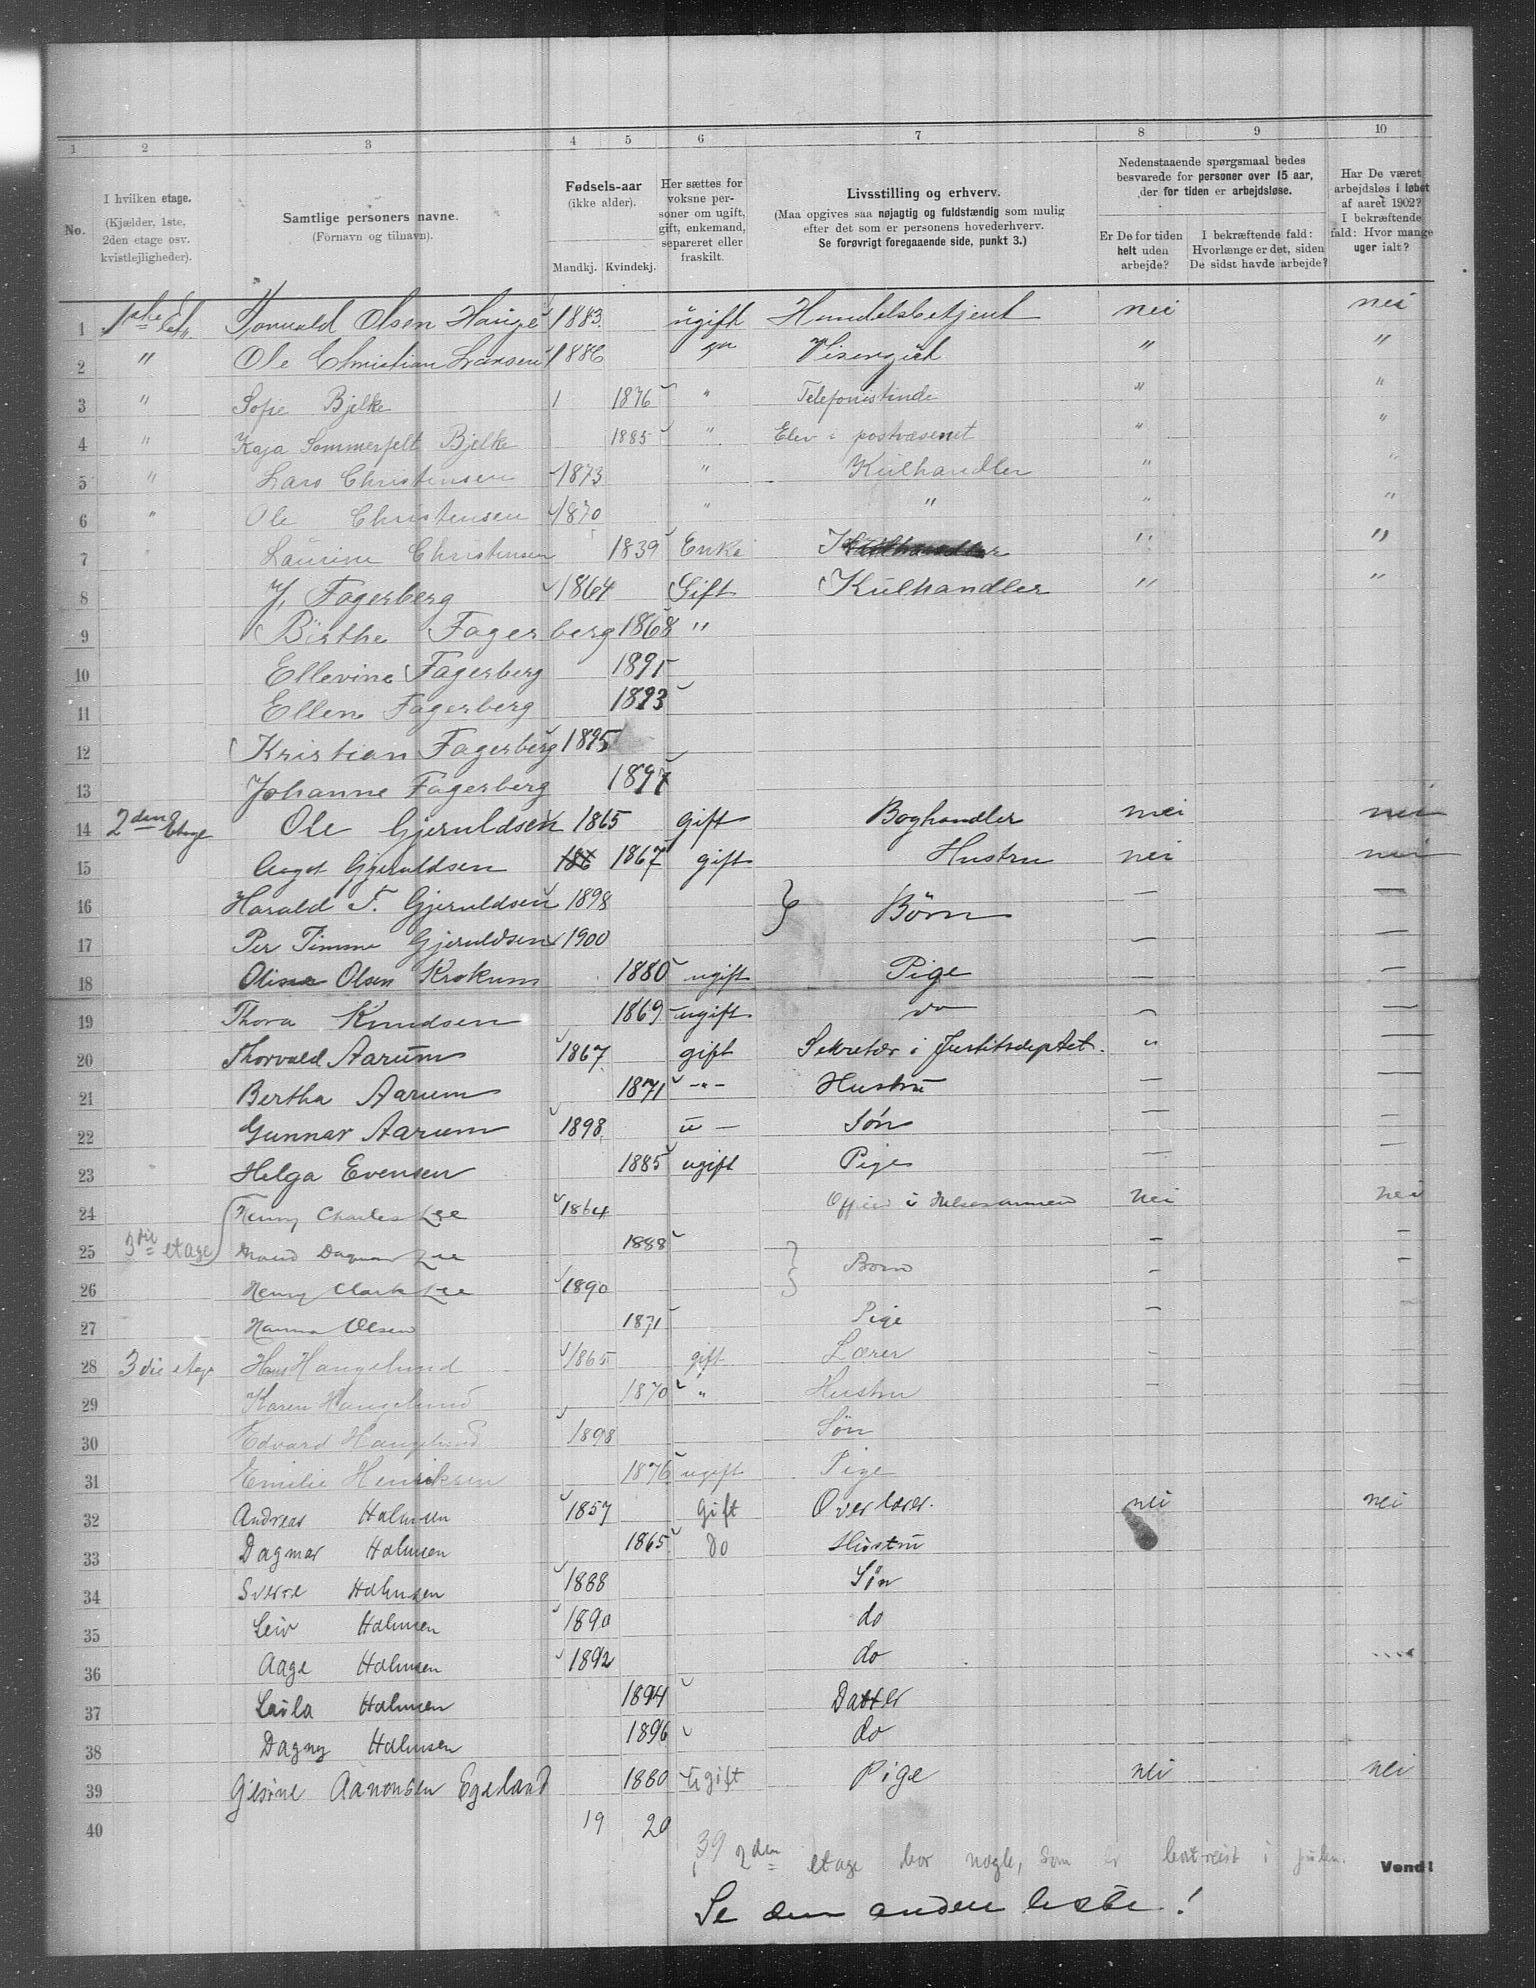 1 2 3 4 5 6 7 8 9 10
No.
I hvilken etage. (Kjælder, 1ste, 2den etage osv. kvistlejligheder).
Samtlige personers navne. (Fornavn og tilnavn).
Fødsels-aar (ikke alder). Mandkj. Kvindekj.
Her sættes for voksne personer om ugift, gift, enkemand, separeret eller fraskilt.
Livsstilling og erhverv. (Maa opgives saa nøjagtig og fuldstændig som mulig efter det som er personens hovederhverv. Se forøvrigt foregaaende side, punkt 3.)
Nedenstaaende spørgsmaal bedes besvarede for personer over 15 aar, der for tiden er arbejdsløse.
Er De for tiden helt uden arbejde?
I bekræftende fald: Hvorlænge er det, siden De sidst havde arbejde?
Har De været arbejdsløs i løbet af aaret 1902? I bekræftende fald: Hvor mange uger ialt?
1 1ste Et. Torvald Olsen Hauge 1883 ugift Handelsbetjent nei nei
2 " Ole Christian Larsen 1886 Visergut " "
3 " Sofie Bjelke 1876 " Telefonistinde " "
4 " Kaja Sommerfelt Bjelke 1885 " Elev i postvæsenet " "
5 " Lars Christensen 1873 " Kulhandler " "
6 " Ole Christensen 1870 " " " "
7 Laurine Christensen 1839 Enke Kulhandler " "
8 J. Fagerberg 1864 Gift Kulhandler " "
9 Birthe Fagerberg 1868 "
10 Ellevine Fagerberg 1891
11 Ellen Fagerberg 1893
12 Kristian Fagerberg 1895
13 Johanne Fagerberg 1897
14 2den Etage Ole Gjeruldsen 1865 gift Boghandler nei nei
15 Aagot Gjeruldsen 186 1867 gift Hustru nei nei
16 Harald T. Gjeruldsen 1898 } Børn — —
17 Per Timme Gjeruldsen 1900 — —
18 Oline Olsen Krokum 1880 ugift Pige — —
19 Thora Knudsen 1869 ugift do — —
20 Thorvald Aarum 1867 gift Sekretær i Justitsdeptet. " —
21 Bertha Aarum 1871 -"- Hustru — —
22 Gunnar Aarum 1898 u — Søn — —
23 Helga Evensen 1885 ugift Pige — —
24 Henry Charles Lee 1864 Officer i Frelsesarmeen nei nei
25 3die etage Dagmar Lee 1888 } Børn - -
26 Henry Clark Lee 1890 - -
27 Hanna Olsen 1871 Pige -
28 3die etage Hans Haugelund 1865 gift Lærer -
29 Karen Haugelund 1870 " Hustru -
30 Edvard Haugelund 1898 Søn
31 Emilie Henriksen 1876 ugift Pige
32 Andreas Holmsen 1857 gift Overlærer. nei nei
33 Dagmar Holmsen 1865 do Hustru
34 Sverre Holmsen 1888 Søn
35 Leiv Holmsen 1890 do
36 Aage Holmsen 1892 do
37 Laila Holmsen 1894 Datter
38 Dagny Holmsen 1896 do
39 Gesine Aanonsen Egeland 1880 Ugift Pige nei nei
40 19 20
39 2den etage bor nogle, som er bortreist i julen. Vend!
Se den anden liste!